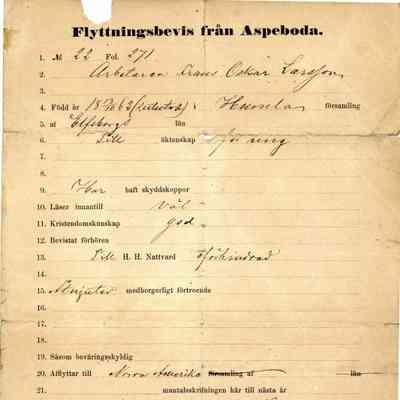 Flyttningsbevis från Aspeboda.
1. № 22 Fol. 271
2. Arbetaren Frans Oskar Larsson
3.
4. Född år 18 62 församling
5. af Elfsborgs län
6. Till äktenskap
7.
8.
9. Har haft skyddskoppor
10. Läser innantill väl
11. Kristendomskunskap god
12. Bevistat förhören
13. Till H. H. Nattvard oförhindrad
14.
15. Åtnjuter medborgerligt förtroende
16.
17.
18.
19. Såsom beväringsskyldig
20. Afflyttar till Norra Amerika församling af län
21. mantalsskrifningen här till nästa år